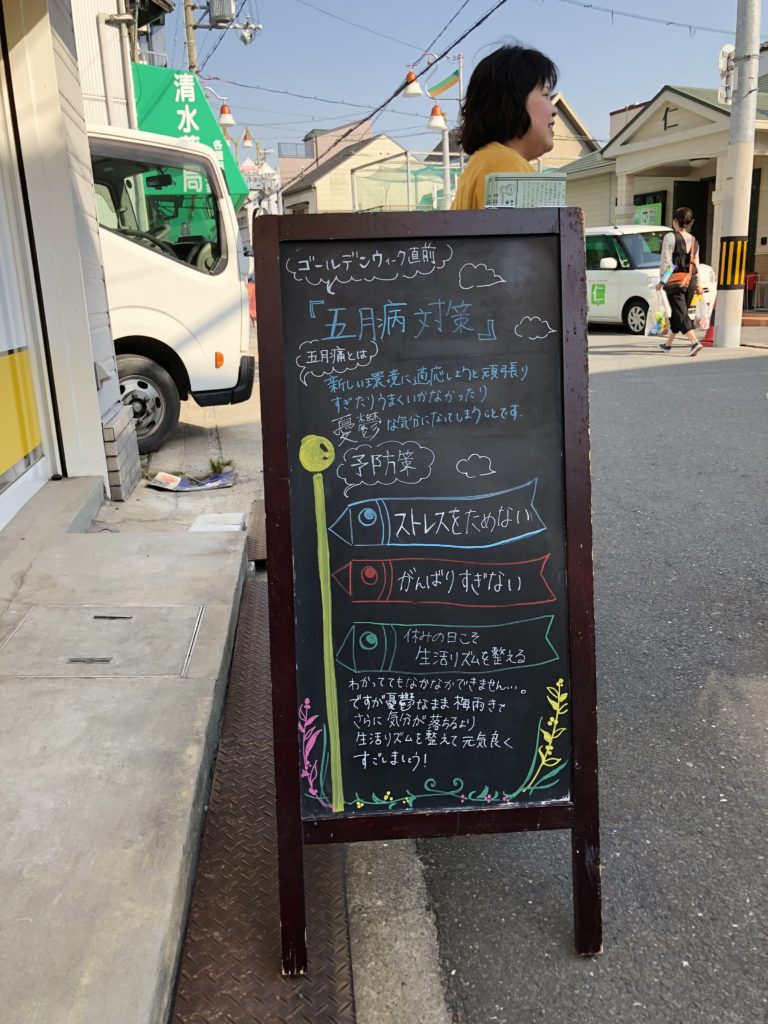 清水
ゴールデンウィーク直前
『五月病対策』
五月病とは
新しい環境に適応しようと頑張り
すぎたりうまくいかなかったり
憂鬱な気分になってしまうことです.
予防策
ストレスをためない
がんばりすぎない
休みの日こそ
生活リズムを整える
わかっててもなかなかできません…。
ですが憂鬱なまま梅雨きて
さらに気分が落ちるより
生活リズムを整えて元気良く
すごしましょう!
仁